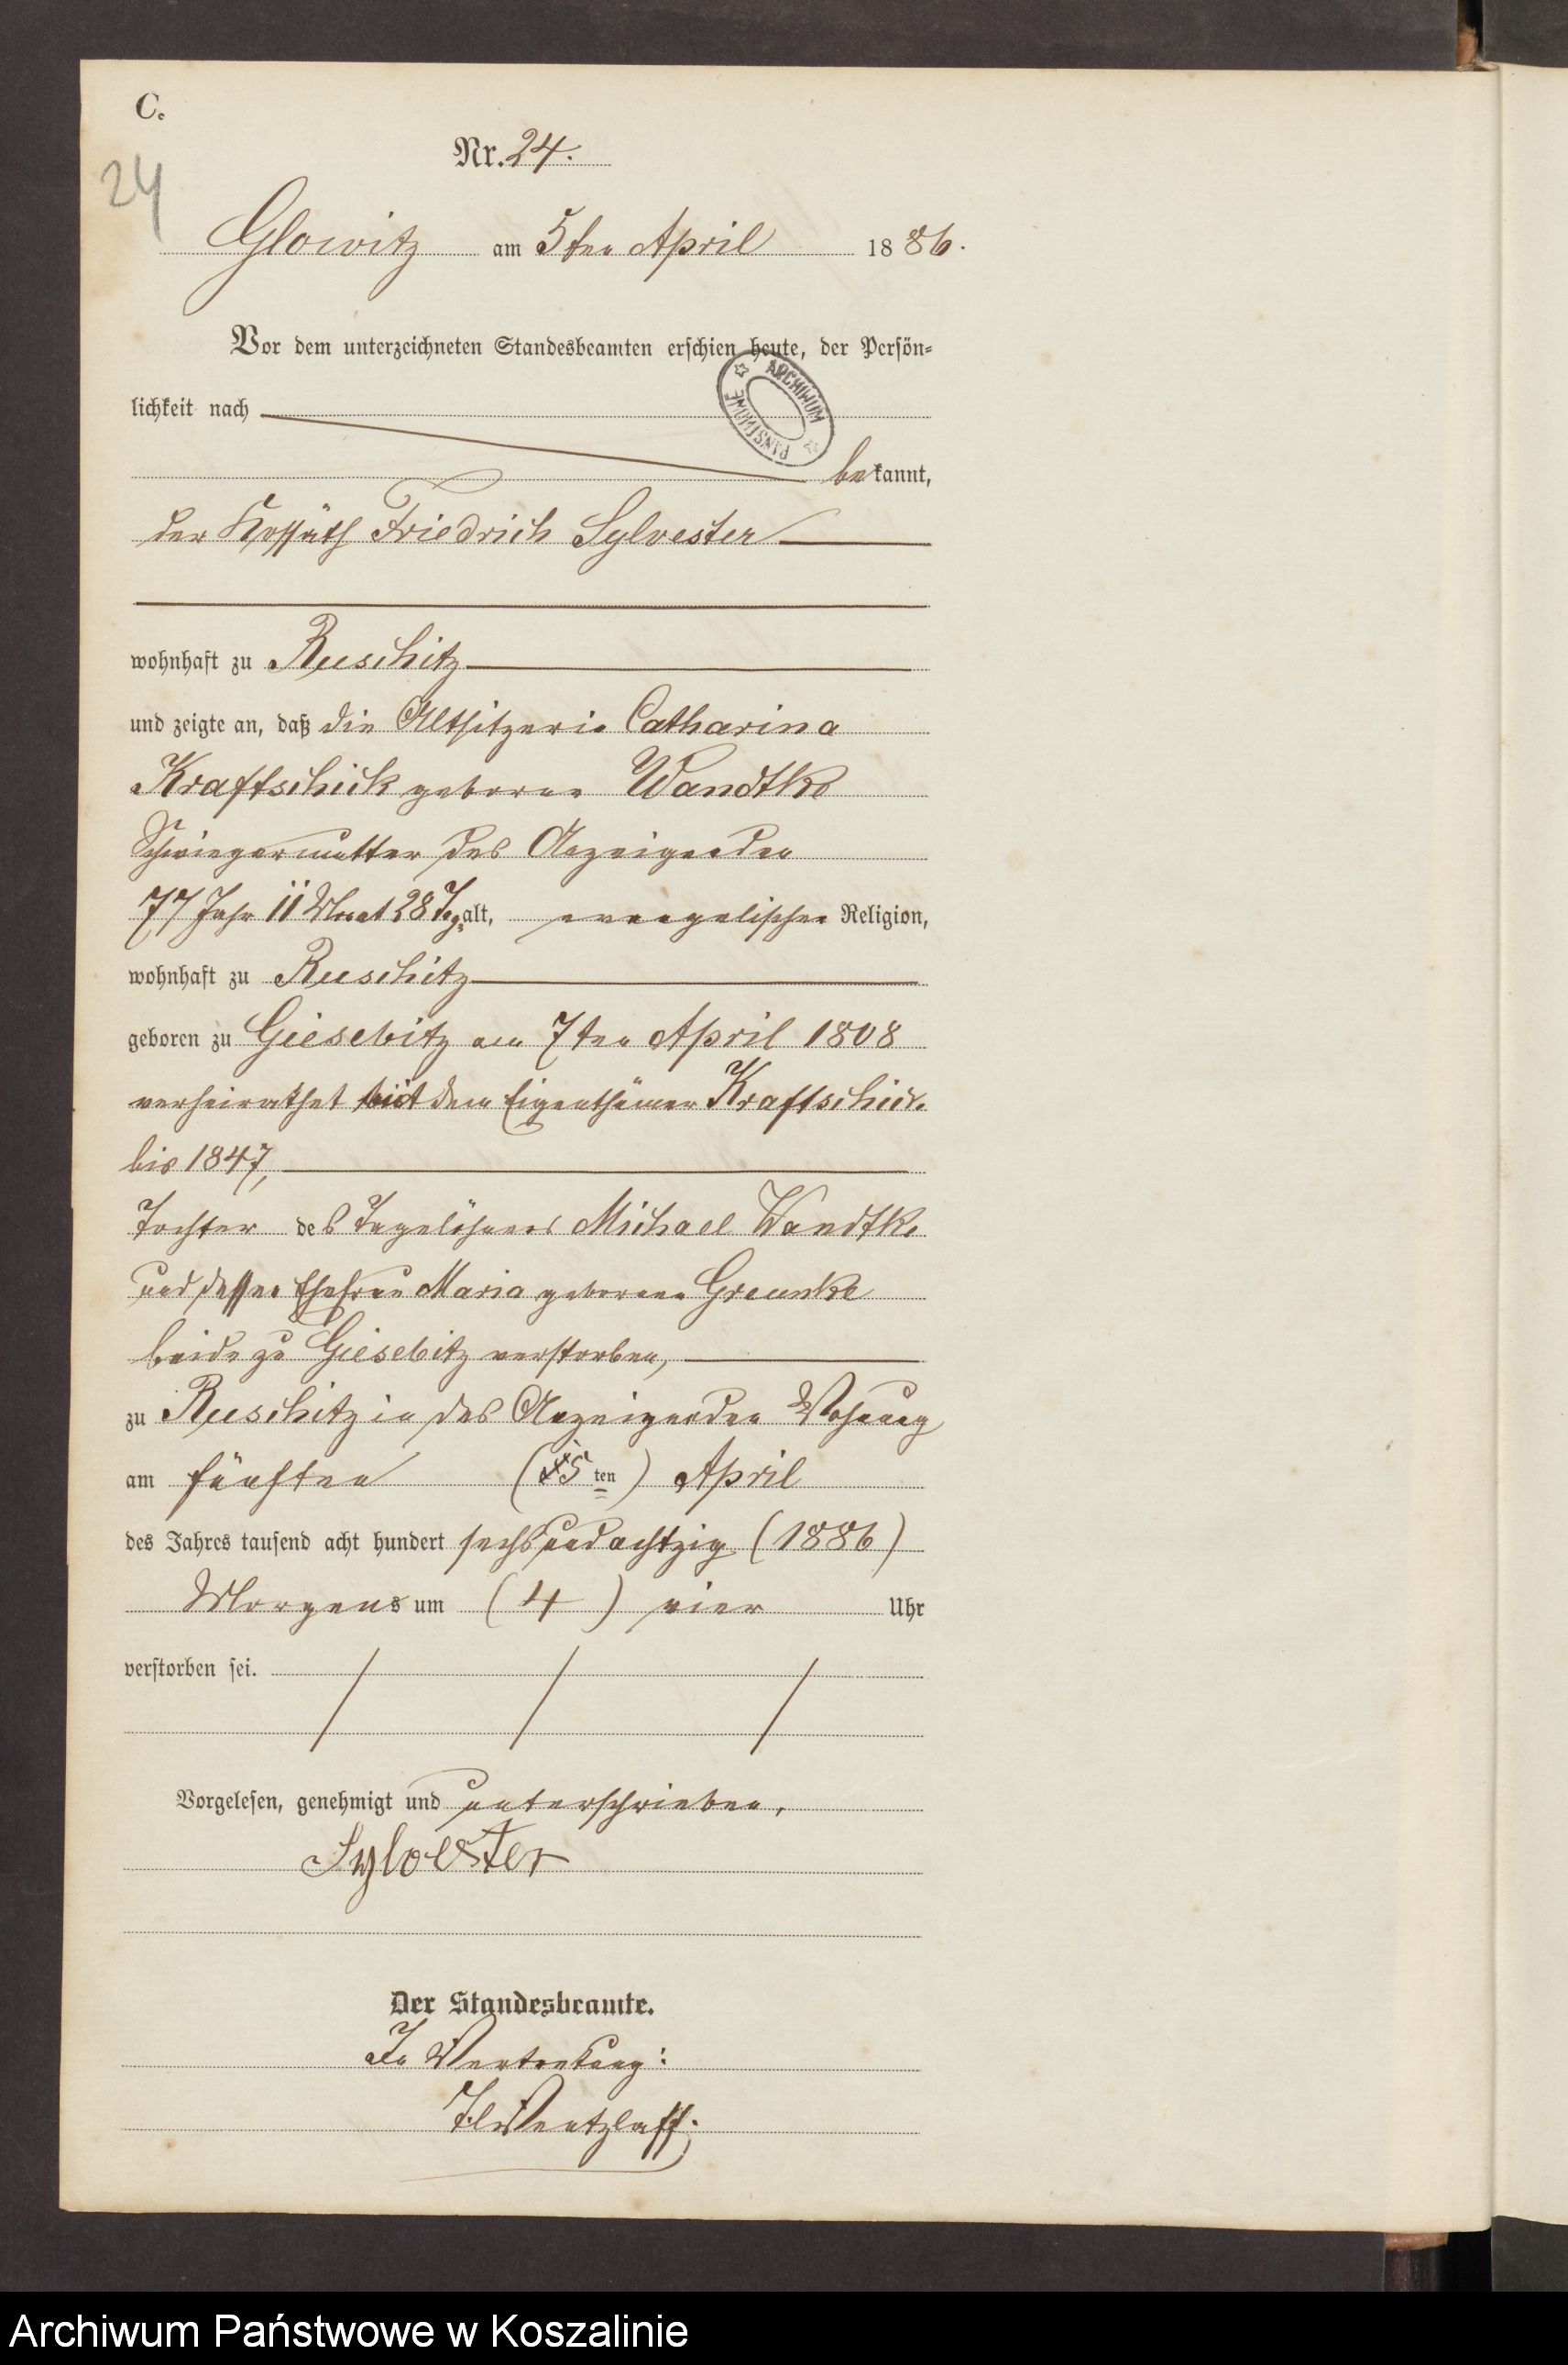 C.
Nr. 24.
24
Glowitz am 5ten April 1886.
Vor dem unterzeichneten Standesbeamten erschien heute, der Persön-
lichkeit nach
ARCHIWUM PAŃSTWOWE
bekannt,
der Kossäth Friedrich Sylvester
wohnhaft zu Ruschitz
und zeigte an, daß die Altsitzerin Catharina
Kraftschick geborne Wandtke
Schwiegermutter des Anzeigenden
77 Jahr 11 Monat 28 Tag alt, evangelischer Religion,
wohnhaft zu Ruschitz
geboren zu Giesebitz am 7ten April 1808
verheirathet mit dem Eigenthümer Kraftschick
bis 1847,
Tochter des Tagelöhners Michael Wandtke
und dessen Ehefrau Maria geborene Greunke
beide zu Giesebitz verstorben,
zu Ruschitz in des Anzeigenden Wohnung
am fünften (5ten) April
des Jahres tausend acht hundert sechsundachtzig (1886)
Morgens um (4) vier Uhr
verstorben sei.
Vorgelesen, genehmigt und unterschrieben,
Sylvester
Der Standesbeamte.
In Vertretung:
Wentzlaff.
Archiwum Państwowe w Koszalinie